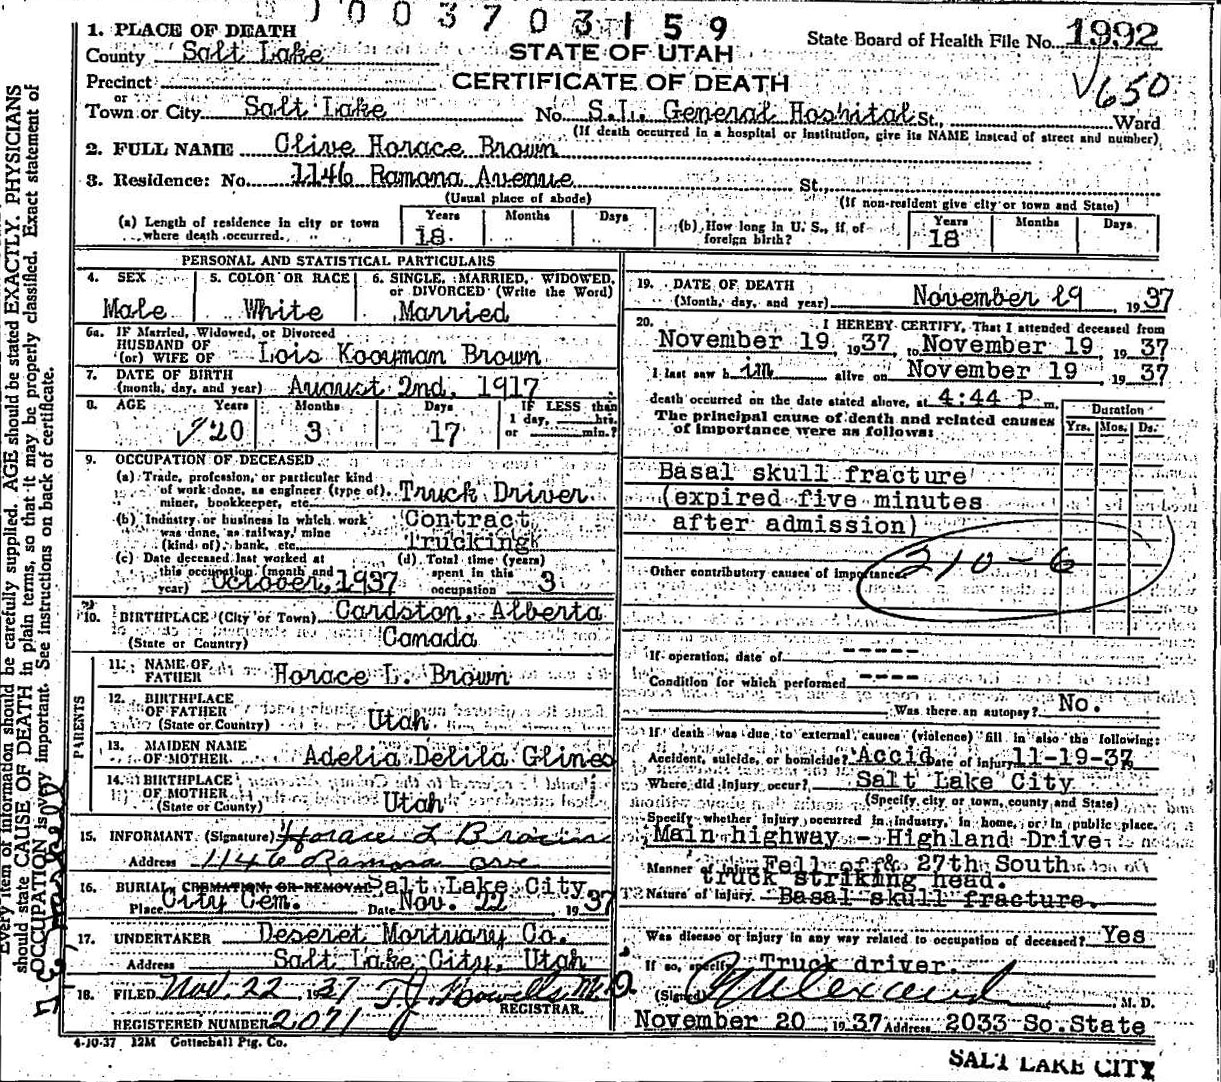 003703159
1. PLACE OF DEATH
State Board of Health File No. 1992
County Salt Lake
STATE OF UTAH
650
Precinct
CERTIFICATE OF DEATH
Town or City Salt Lake No. S.L. General Hospital St., Ward
(If death occurred in a hospital or institution, give its NAME instead of street and number)
2. FULL NAME Clive Horace Brown
3. Residence: No. 1146 Ramona Avenue St.,
(Usual place of abode) (If non-resident give city or town and State)
(a) Length of residence in city or town where death occurred. Years 18 Months Days
(b) How long in U. S., if of foreign birth? Years 18 Months Days
PERSONAL AND STATISTICAL PARTICULARS
4. SEX Male
5. COLOR OR RACE White
6. SINGLE, MARRIED, WIDOWED, or DIVORCED (Write the Word) Married
6a. IF Married, Widowed, or Divorced
HUSBAND OF
(or) WIFE OF Lois Kooyman Brown
7. DATE OF BIRTH
(month, day, and year) August 2nd, 1917
8. AGE Years 20 Months 3 Days 17 IF LESS than 1 day, hrs. or min.?
9. OCCUPATION OF DECEASED
(a) Trade, profession, or particular kind of work done, as engineer (type of), miner, bookkeeper, etc. Truck Driver
(b) Industry or business in which work was done, as railway, mine (kind of), bank, etc. Contract Trucking
(c) Date deceased last worked at this occupation (month and year) October, 1937
(d) Total time (years) spent in this occupation 3
10. BIRTHPLACE (City or Town) Cardston, Alberta
(State or Country) Canada
PARENTS
11. NAME OF FATHER Horace L. Brown
12. BIRTHPLACE OF FATHER
(State or Country) Utah
13. MAIDEN NAME OF MOTHER Adelia Delila Glines
14. BIRTHPLACE OF MOTHER
(State or Country) Utah
15. INFORMANT (Signature) Horace L Brown
Address 1146 Ramona ave
16. BURIAL, CREMATION, OR REMOVAL Salt Lake City
Place City Cem. Date Nov. 22 1937
17. UNDERTAKER Deseret Mortuary Co.
Address Salt Lake City, Utah
18. FILED Nov. 22, 1937 T.J. Howells M.D.
REGISTRAR.
REGISTERED NUMBER 2071
4-10-37 12M Gottschall Ptg. Co.
19. DATE OF DEATH
(Month, day, and year) November 19 1937
20. I HEREBY CERTIFY, That I attended deceased from
November 19, 1937, to November 19, 1937
I last saw him alive on November 19, 1937
death occurred on the date stated above, at 4:44 P m.
The principal cause of death and related causes of importance were as follows:
Duration
Yrs. Mos. Ds.
Basal skull fracture
(expired five minutes
after admission)
210-6
Other contributory causes of importance:
If operation, date of -----
Condition for which performed ----
Was there an autopsy? No.
If death was due to external causes (violence) fill in also the following:
Accident, suicide, or homicide? Accid Date of injury 11-19-37
Where did injury occur? Salt Lake City
(Specify city or town, county and State)
Specify whether injury occurred in industry, in home, or in public place.
Main highway - Highland Drive
& 27th South
Manner of Injury Fell off truck striking head.
Nature of Injury Basal skull fracture.
Was disease or injury in any way related to occupation of deceased? Yes
If so, specify Truck driver.
(Signed) M. D.
November 20 1937 Address 2033 So. State
SALT LAKE CITY
Every item of information should be carefully supplied. AGE should be stated EXACTLY. PHYSICIANS
should state CAUSE OF DEATH in plain terms, so that it may be properly classified. Exact statement of
OCCUPATION is very important. See instructions on back of certificate.